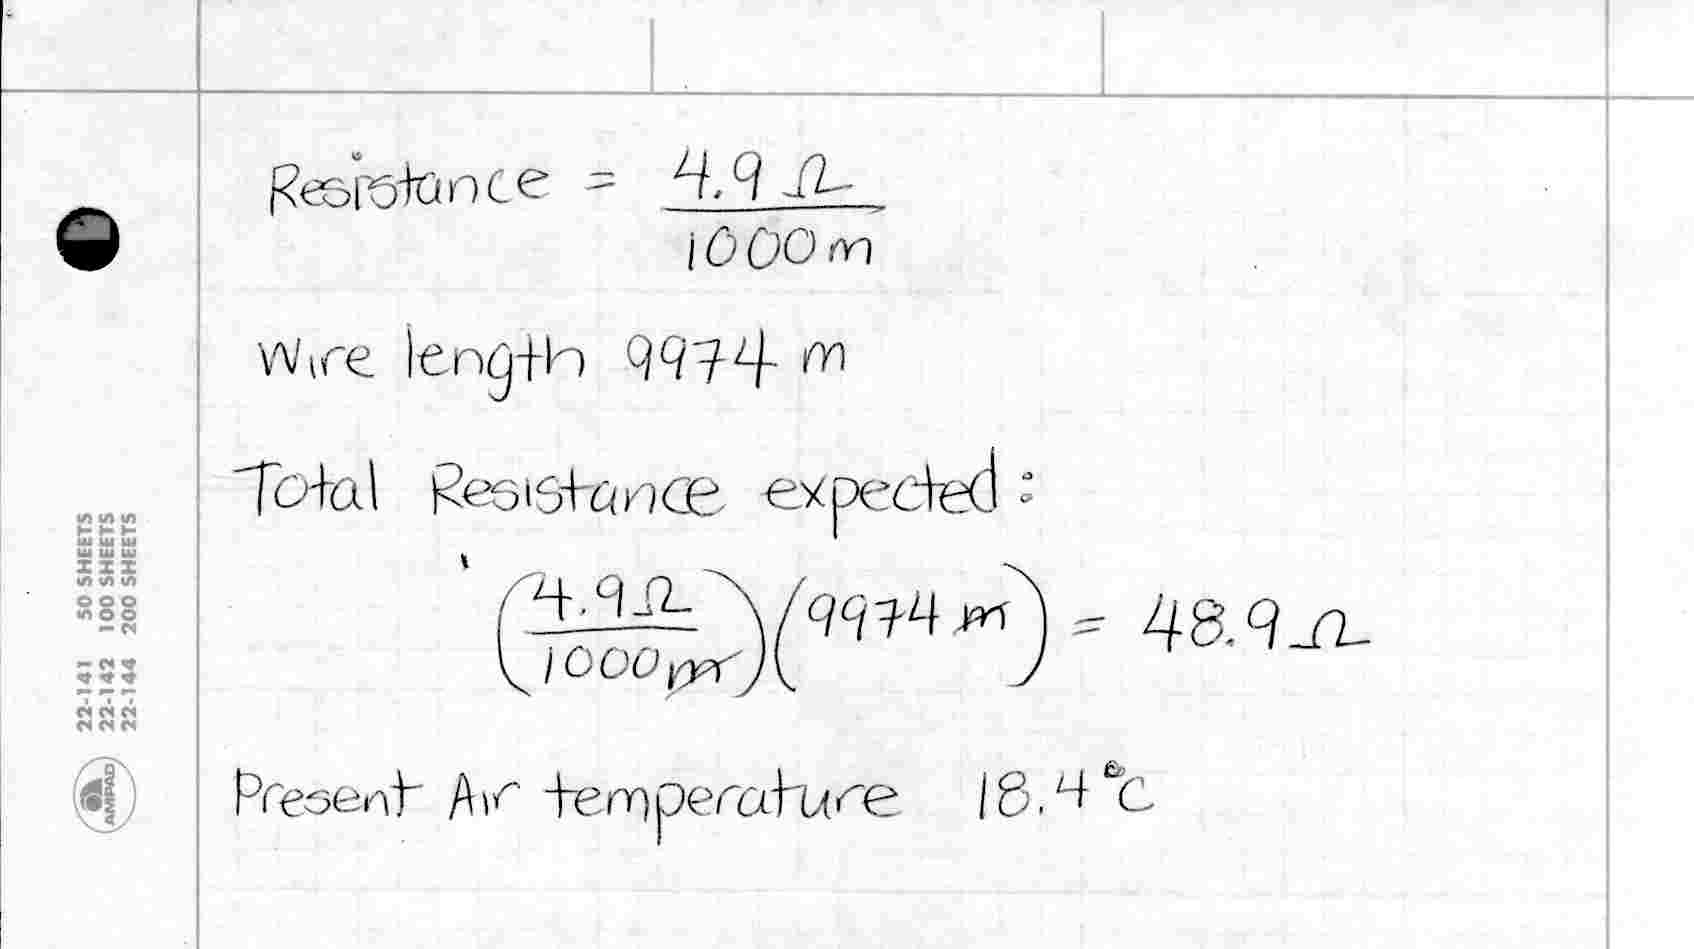 Resistance = 4.9 Ω / 1000 m
Wire length 9974 m
Total Resistance expected:
(4.9 Ω / 1000 m)(9974 m) = 48.9 Ω
Present Air temperature 18.4°C
22-141 50 SHEETS
22-142 100 SHEETS
22-144 200 SHEETS
AMPAD